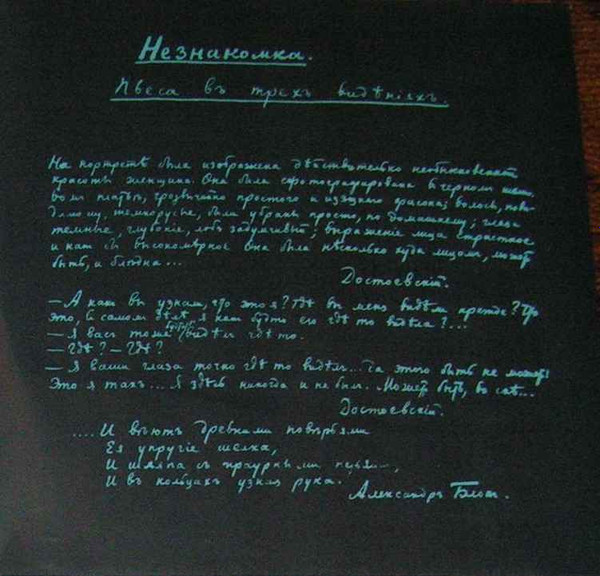 Незнакомка.
Пьеса въ трехъ видѣнiяхъ.
На портретѣ была изображена дѣйствительно необыкновенной
красоты женщина. Она была сфотографирована въ черномъ шел-
ковомъ платьѣ, чрезвычайно простого и изящнаго фасона; волосы, пови-
димому, темнорусые, были убраны просто, по домашнему; глаза
темные, глубокiе, лобъ задумчивый; выраженiе лица страстное
и какъ бы высокомѣрное. Она была нѣсколько худа лицомъ, можетъ
быть, и блѣдна...
Достоевскiй.
— А какъ вы узнали, что это я? Гдѣ вы меня видѣли прежде? Что
это, въ самомъ дѣлѣ, я какъ будто его гдѣ то видѣла?...
— Я васъ тоже будто видѣлъ гдѣ то.
— Гдѣ? — Гдѣ?
— Я ваши глаза точно гдѣ то видѣлъ... да этого быть не можетъ!
Это я такъ... Я здѣсь никогда и не былъ. Можетъ быть, во снѣ...
Достоевскiй.
.... И вѣютъ древними повѣрьями
Ея упругiе шелка,
И шляпа съ траурными перьями,
И въ кольцахъ узкая рука.
Александръ Блокъ.